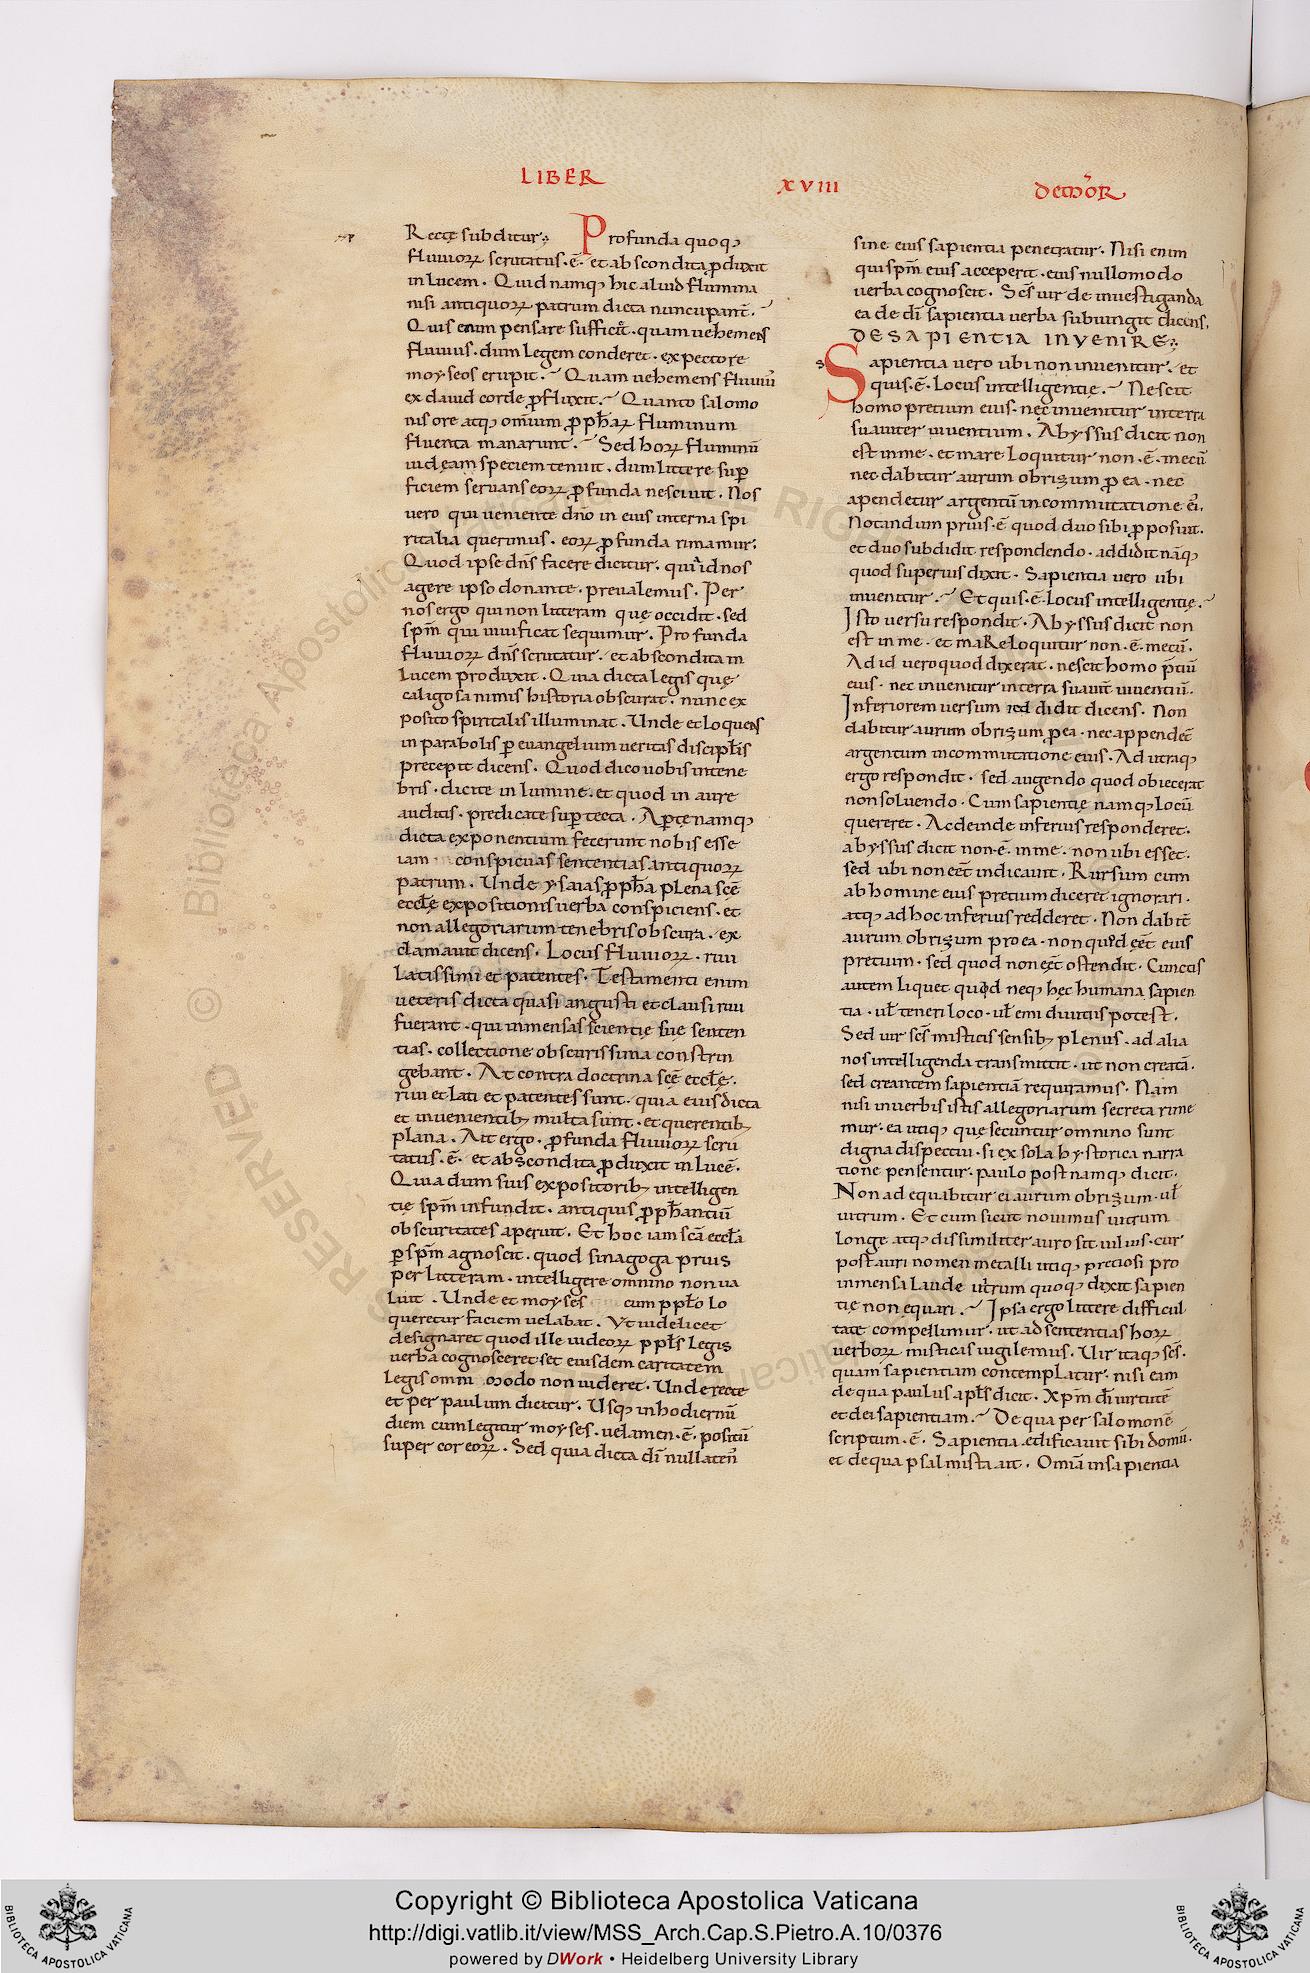 LIBER XVIII DEMOR̄
Rectę subditur; Profunda quoq;
fluuioꝝ scrutatus .ē. et abscondita ꝓduxit
in lucem. Quid namq; hic aliud flumina
nisi antiquoꝝ patrum dicta nuncupant̄.
Quis enim pensare sufficit. quam uehemens
fluuius. dum legem conderet. ex pectore
moyseos erupit. Quam uehemens fluuiꝰ
ex dauid corde ꝓfluxit. Quanto salomo
nis ore atq; omnium ꝓpħaꝝ fluminum
fluenta manarunt. Sed hoꝝ fluminū
iudęam speciem tenuit. dum littere suꝑ
ficiem seruans eoꝝ ꝓfunda nesciuit. Nos
uero qui ueniente dn̄o in eius interna spi
ritalia querimus. eoꝝ ꝓfunda rimamur;
Quod ipse dn̄s facere dicitur. quia id nos
agere ipso donante. preualemus. Per
nos ergo qui non litteram quę occidit. sed
sp̄m qui uiuificat sequimur. Profunda
fluuioꝝ dn̄s scrutatur. et abscondita in
lucem produxit. Quia dicta legis quę
caligosa nimis historia obscurat. nunc ex
posito spiritalis illuminat. Unde et loquens
in parabolis ꝑ euangelium ueritas discipłis
precepit dicens. Quod dico uobis in tene
bris. dicite in lumine. et quod in aure
auditis. predicate suꝑ tecta. Aꝑtę namq;
dicta exponentium fecerunt nobis esse
iam conspicuas sententias antiquoꝝ
patrum. Unde ysaias ꝓpħa plena scē
eccłę expositionis uerba conspiciens. et
non allegoriarum tenebris obscura. ex
clamauit dicens. Locus fluuioꝝ. riui
latissimi et patentes. Testamenti enim
ueteris dicta quasi angusti et clausi riui
fuerant. qui inmensas scientię suę senten
tias. collectione obscurissima constrin
gebant. At contra doctrina scē eccłę.
riui et lati et patentes sunt. quia eius dicta
et inuenientib; multa sunt. et querentib;
plana. Ait ergo. ꝓfunda fluuioꝝ scru
tatus .ē. et abscondita ꝓduxit in lucē.
Quia dum suis expositorib; intelligen
tię sp̄m infundit. antiquis ꝓpħantiū
obscuritates aperuit. Et hoc iam scā eccła
ꝑ sp̄m agnoscit. quod sinagoga prius
per litteram. intelligere omnino non ua
luit. Unde et moyses cum pp̄ło lo
queretur faciem uelabat. Vt uidelicet
designaret quod ille iudeoꝝ pp̄łs legis
uerba cognosceret set eiusdem caritatem
legis omni modo non uideret. Unde recte
et per paulum dicitur. Usq; in hodiernū
diem cum legitur moyses. uelamen .ē. positū
super cor eoꝝ. Sed quia dicta dī nullaten̄
sine eius sapientia penetratur. Nisi enim
qui sp̄m eius acceperit. eius nullomodo
uerba cognoscit. Scs̄ uir de inuestiganda
ea de dī sapientia uerba subiungit dicens.
DE SAPIENTIA INVENIRE;
Sapientia uero ubi non inuenitur. et
quis .ē. locus intelligentię. Nescit
homo pretium eius. nęc inuenitur in terra
suauiter uiuentium. Abyssus dicit non
est in me. et mare loquitur non .ē. mecū
nec dabitur aurum obrizum ꝓ ea. nec
apendetur argentū in commutatione eī.
Notandum prius .ē. quod duo sibi ꝓposuit.
et duo subdidit respondendo. addidit nāq;
quod superius dixit. Sapientia uero ubi
inuenitur. Et quis .ē. locus intelligentię.
Isto uersu respondit. Abyssus dicit non
est in me. et maRe loquitur non .ē. mecū.
Ad id uero quod dixerat. nescit homo p̄tiū
eius. nec inuenitur in terra suauit̄ uiuentiū.
Inferiorem uersum reddidit dicens. Non
dabitur aurum obrizum ꝓ ea. nec appendet̄
argentum in commutatione eius. Ad utraq;
ergo respondit. sed augendo quod obiecerat
non soluendo. Cum sapientię namq; locū
quereret. Ac deinde inferius responderet.
abyssus dicit non .ē. in me. non ubi esset.
sed ubi non eēt indicauit. Rursum cum
ab homine eius pretium diceret ignorari.
atq; ad hoc inferius redderet. Non dabit̄
aurum obrizum pro ea. non quid eēt eius
pretium. sed quod non eēt ostendit. Cunctis
autem liquet quod neq; hęc humana sapien
tia. uł teneri loco. uł emi diuitiis potest.
Sed uir scs̄ misticis sensib; plenus. ad alia
nos intelligenda transmittit. ut non creatā.
sed creantem sapientiā requiramus. Nam
nisi in uerbis istis allegoriarum secreta rime
mur. ea utiq; quę secuntur omnino sunt
digna dispectui. si ex sola hystorica narra
tione pensentur. paulo post namq; dicit.
Non adequabitur ei aurum obrizum. uł
uitrum. Et cum sicut nouimus uitrum
longe atq; dissimiliter auro sit uilius. cur
post auri nomen metalli utiq; preciosi pro
inmensa laude uitrum quoq; dixit sapien
tię non equari. Ipsa ergo littere difficul
tate compellimur. ut ad sententias hoꝝ
uerboꝝ misticas uigilemus. Uir itaq; scs̄.
quam sapientiam contemplatur. nisi eam
de qua paulus apłs dicit. Xp̄m dī uirtutē
et dei sapientiam. De qua per salomonē
scriptum .ē. Sapientia edificauit sibi domū.
et de qua psalmista ait. Omīa in sapientia
Copyright © Biblioteca Apostolica Vaticana
http://digi.vatlib.it/view/MSS_Arch.Cap.S.Pietro.A.10/0376
powered by DWork • Heidelberg University Library